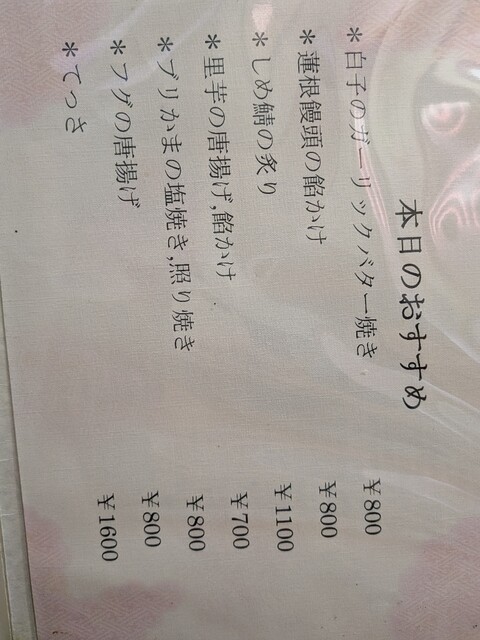 本日のおすすめ
＊白子のガーリックバター焼き ¥800
＊蓮根饅頭の餡かけ ¥800
＊しめ鯖の炙り ¥1100
＊里芋の唐揚げ,餡かけ ¥700
＊ブリかまの塩焼き,照り焼き ¥800
＊フグの唐揚げ ¥800
＊てっさ ¥1600